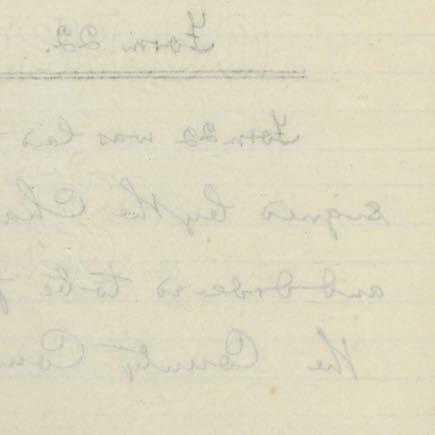 Form 22.
Form 22 was laid
signed by the Cha
and ordered to be
the County Coun